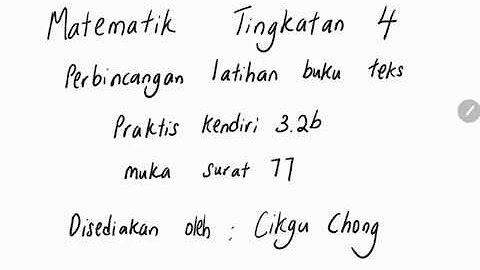 Matematik Tingkatan 4
Perbincangan latihan buku teks
Praktis Kendiri 3.2b
muka surat 77
Disediakan oleh : Cikgu Chong